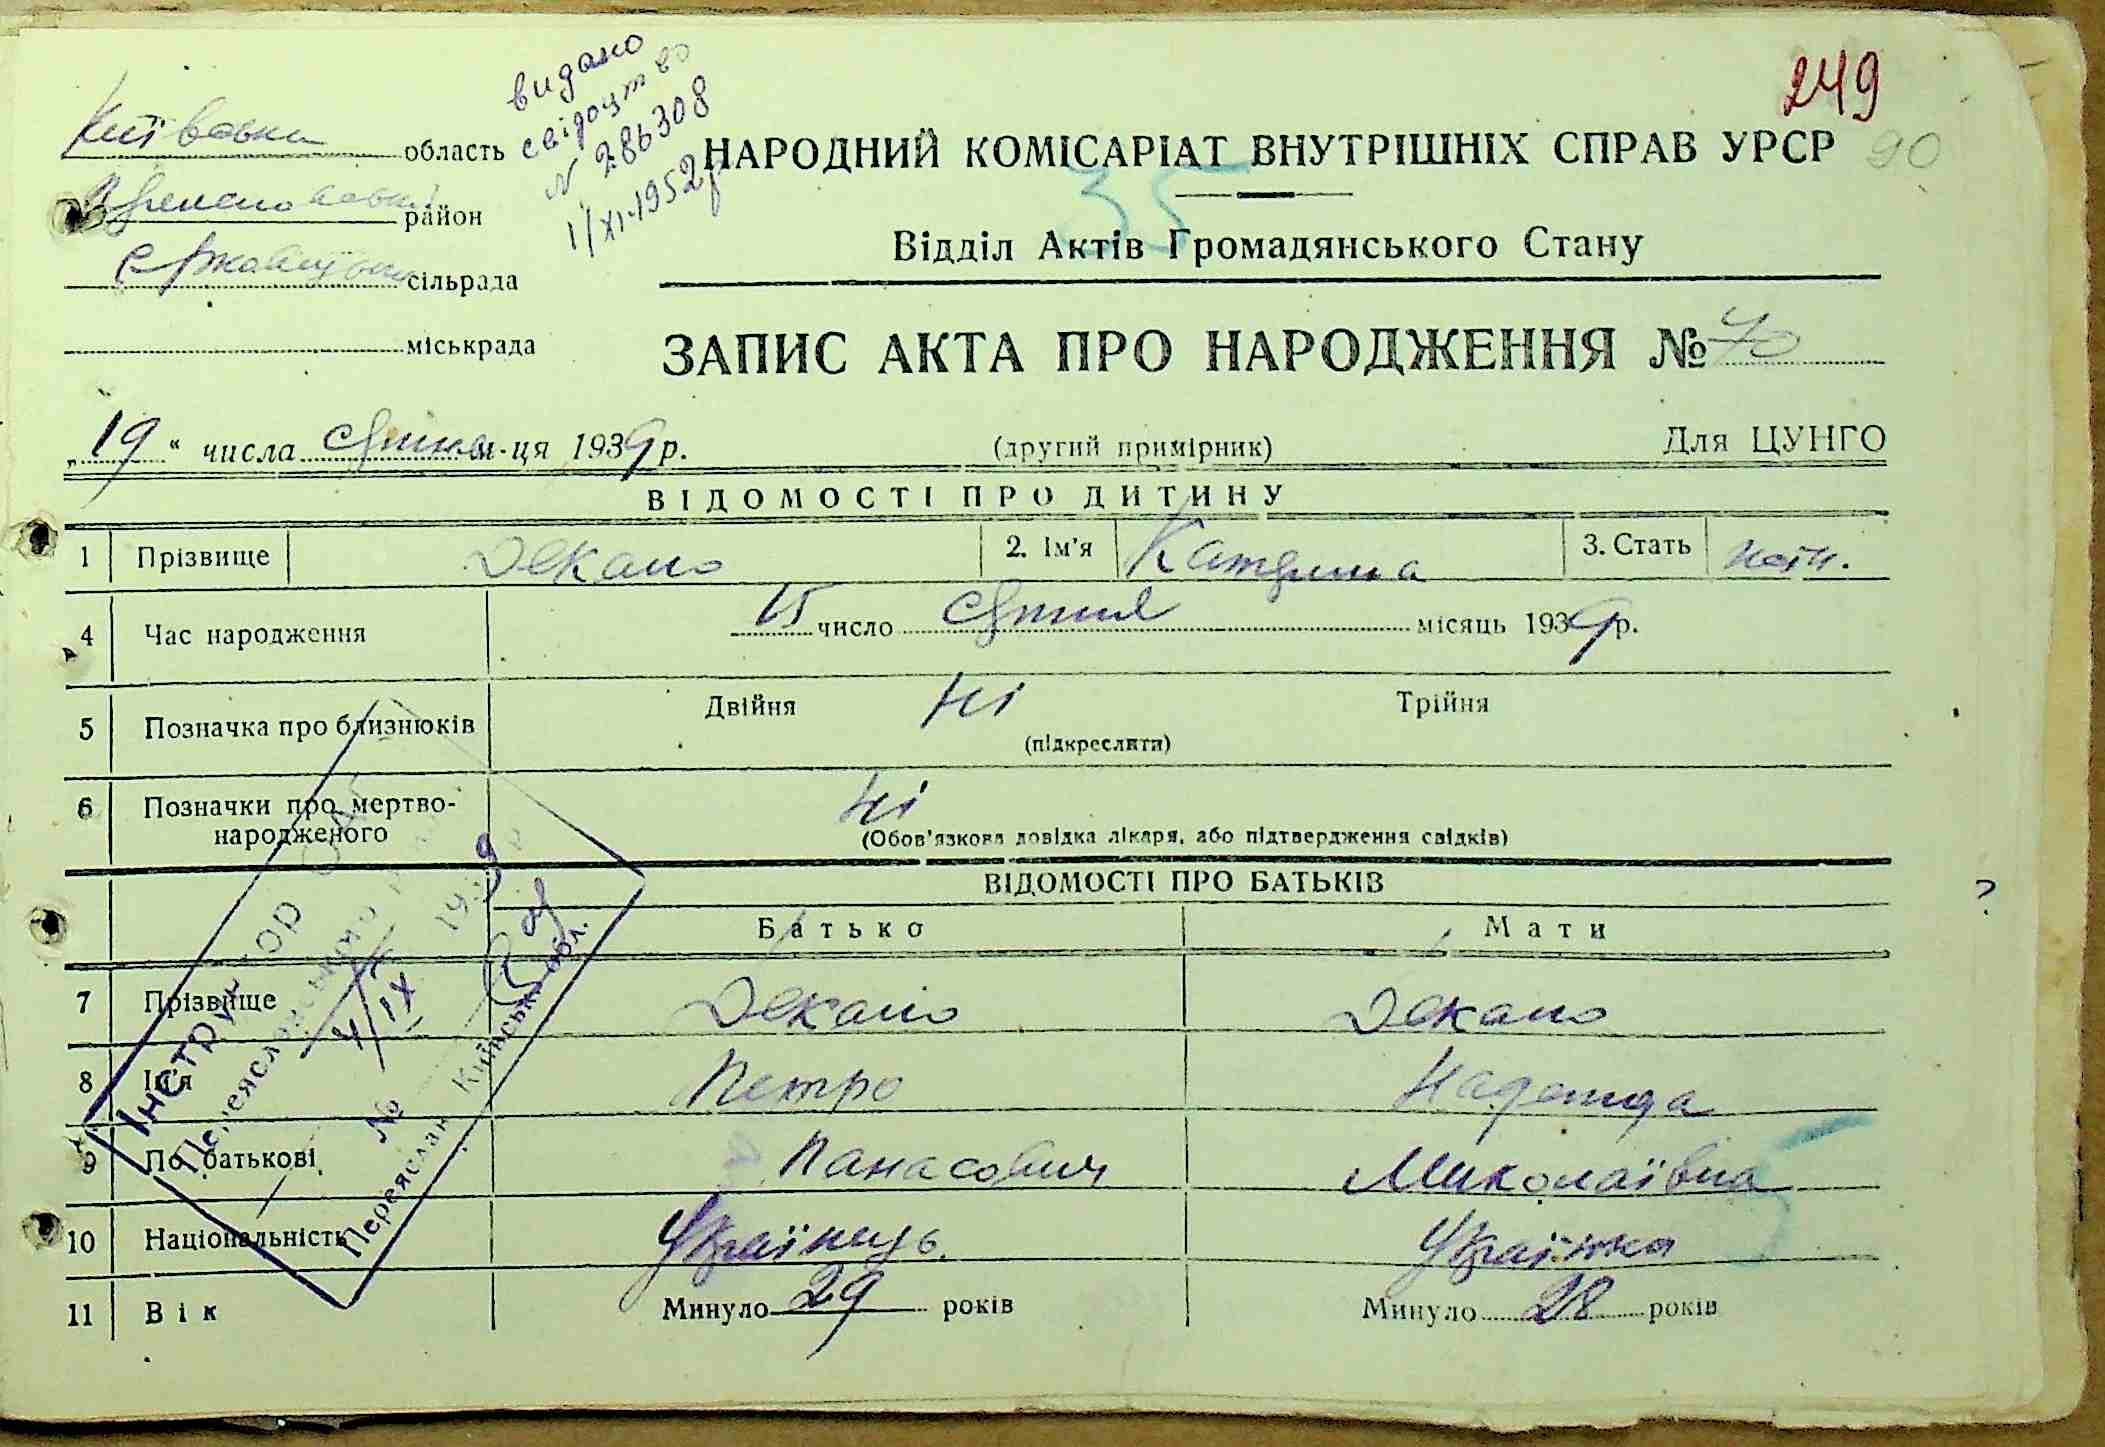 249
90
видано
свідоцтво
N 286308
1/XI-1952р
Київська область
район
сільрада
міськрада
НАРОДНИЙ КОМІСАРІАТ ВНУТРІШНІХ СПРАВ УРСР
35
Відділ Актів Громадянського Стану
ЗАПИС АКТА ПРО НАРОДЖЕННЯ № 70
„19“ числа м-ця 1939 р.
(другий примірник)
Для ЦУНГО
ВІДОМОСТІ ПРО ДИТИНУ
1 Прізвище Декало 2. Ім'я Катерина 3. Стать
4 Час народження 15 число місяць 1939 р.
5 Позначка про близнюків Двійня Ні Трійня
(підкреслити)
6 Позначки про мертво-
народженого Ні
(Обов'язкова довідка лікаря, або підтвердження свідків)
ВІДОМОСТІ ПРО БАТЬКІВ
Батько Мати
7 Прізвище Декало Декало
8 Ім'я Петро Надежда
9 По батькові Панасович Миколаївна
10 Національність Українець Українка
11 Вік Минуло 29 років Минуло 28 років
4/IX
№
Переяслав Київськ. обл.